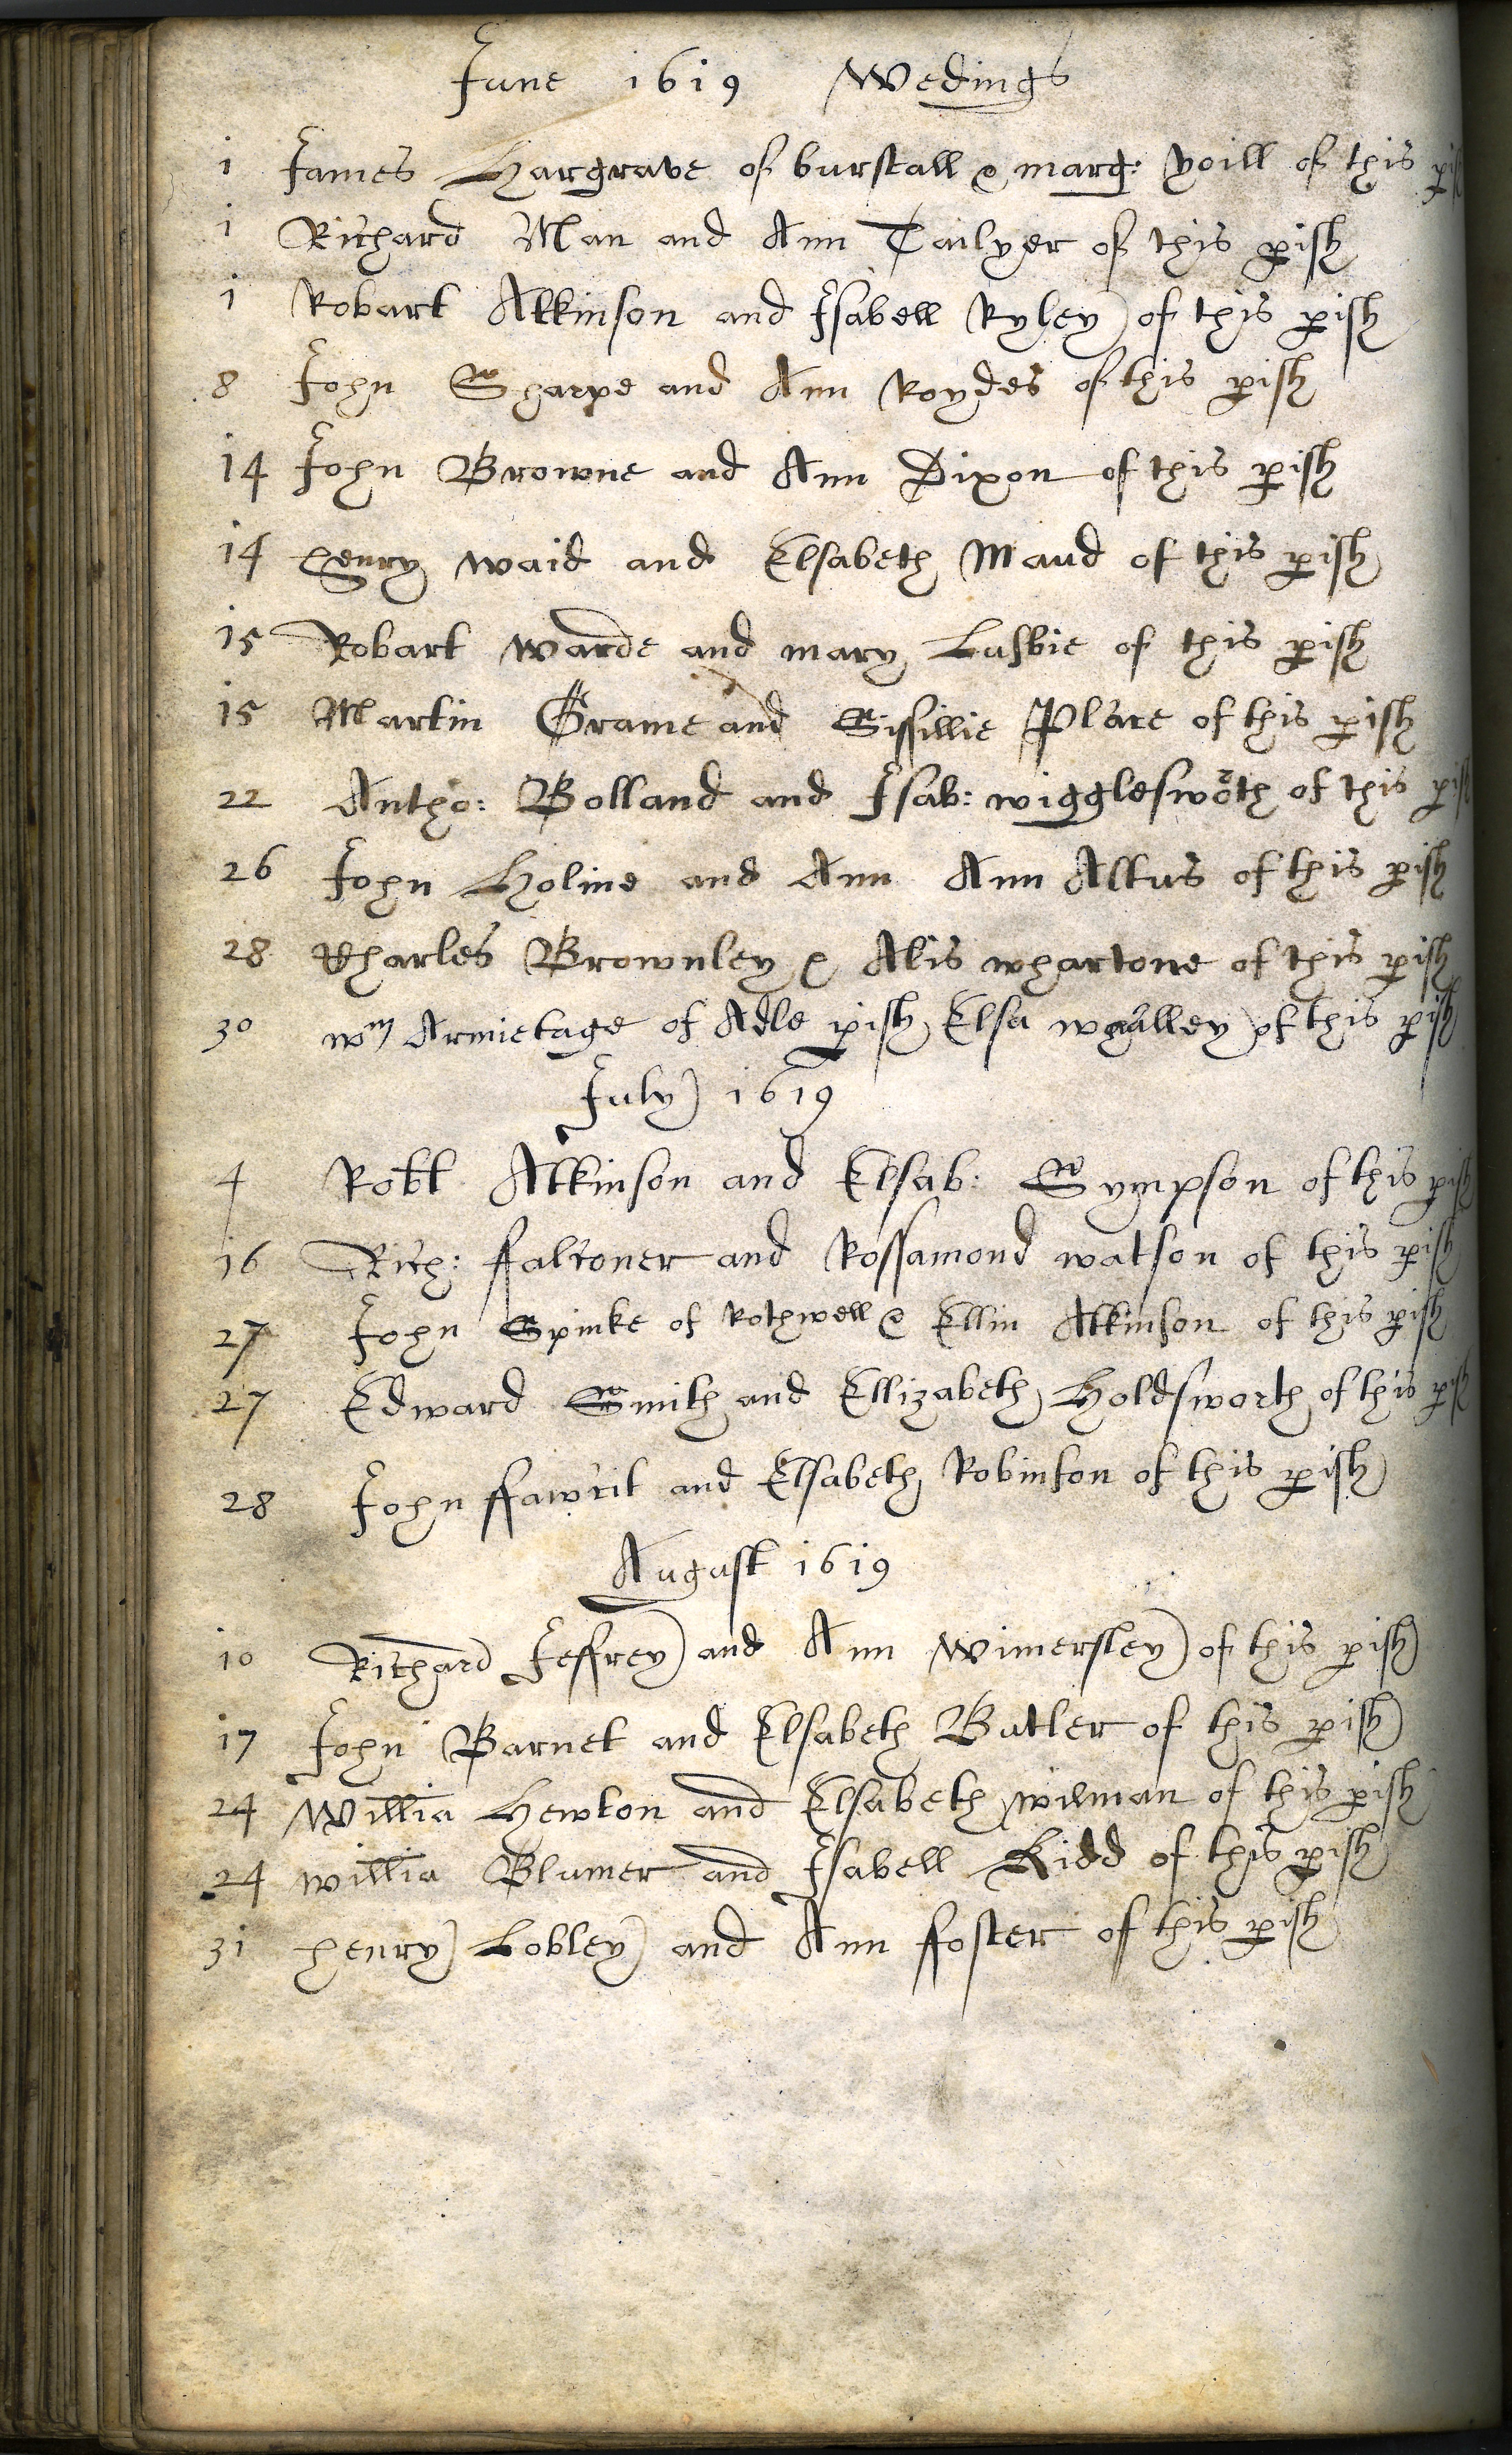 June 1619 Wedings
1 James Hargrave of burstall & marg: Yoill of this pish
1 Richard Man and Ann Tailyer of this pish
1 Robart Atkinson and Isabell Ryley of this pish
8 John Sharpe and Ann Roydes of this pish
14 John Browne and Ann Dixon of this pish
14 henry waid and Elsabeth Maud of this pish
15 Robart warde and mary Lusbie of this pish
15 Martin Grame and Sissillie Place of this pish
22 Antho: Bolland and Isab: wiggleswoth of this pish
26 John Holme and Ann Ann Altus of this pish
28 Charles Brownley & Alis whartone of this pish
30 wm Armietage of Adle pish Elsa whalley of this pish
July 1619
4 Robt Atkinson and Elsab: Sympson of this pish
16 Rich: falconer and Rossamond watson of this pish
27 John Spinke of Rothwell & Ellin Atkinson of this pish
27 Edward Smith and Ellizabeth Holdsworth of this pish
28 John ffawcit and Elsabeth Robinson of this pish
August 1619
10 Richard Jeffrey and Ann Wimersley of this pish
17 John Barnet and Elsabeth Butler of this pish
24 Willia Hewton and Elsabeth wilman of this pish
24 willia Blumer and Isabell Kidd of this pish
31 henry Lobley and Ann ffoster of this pish